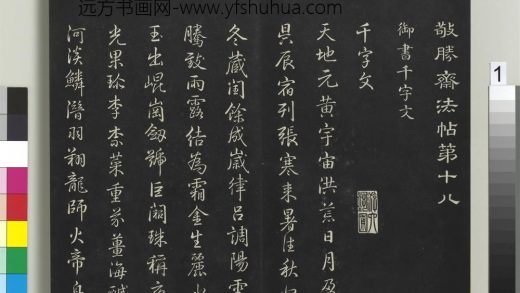 远方书画网-www.yfshuhua.com
敬勝齋法帖第十八
御書千字文
千字文
天地元黃宇宙洪荒日月盈
昃辰宿列張寒來暑往秋收
冬藏閏餘成歲律呂調陽雲
騰致雨露結為霜金生麗水
玉出崐崗劔號巨闕珠稱夜
光果珍李柰菜重芥薑海鹹
河淡鱗潛羽翔龍師火帝鳥
1